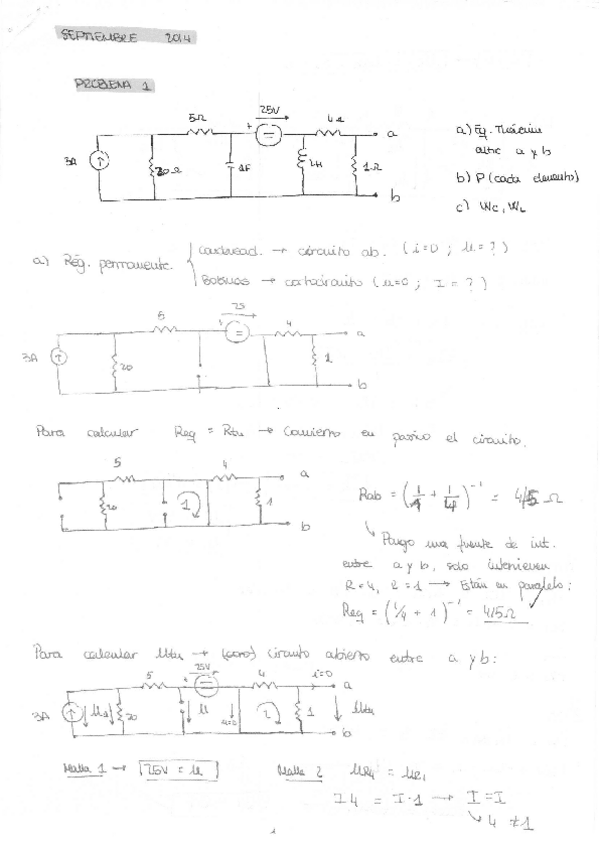 SEPTIEMBRE 2014
PROBLEMA 1
5Ω 25V 4Ω a
3A 20Ω 1F 2H 1Ω b
a) Eq. Thévenin entre a y b
b) P (cada elemento)
c) Wc, WL
a) Rég. permanente. → circuito ab. (i=0 ; u=?)
Bobinas → cortocircuito (u=0 ; I=?)
5 25 4 a
3A 20 1 b
Para calcular Req = Rth → Convierto en pasivo el circuito.
5 4 a
20 1 1 b
Rab = (1/1 + 1/4)⁻¹ = 4/5 Ω
Pongo una fuente de int.
entre a y b, solo intervienen
R=4, R=1 → Están en paralelo:
Req = (1/4 + 1)⁻¹ = 4/5Ω
Para calcular Uth → circuito abierto entre a y b:
5 25V 4 i=0 a
3A 20 U u=0 2 1 Uth b
Malla 1 → 25V = U
Malla 2 UR4 = UR1
I4 = I·1 → I=I
4 ≠ 1
1